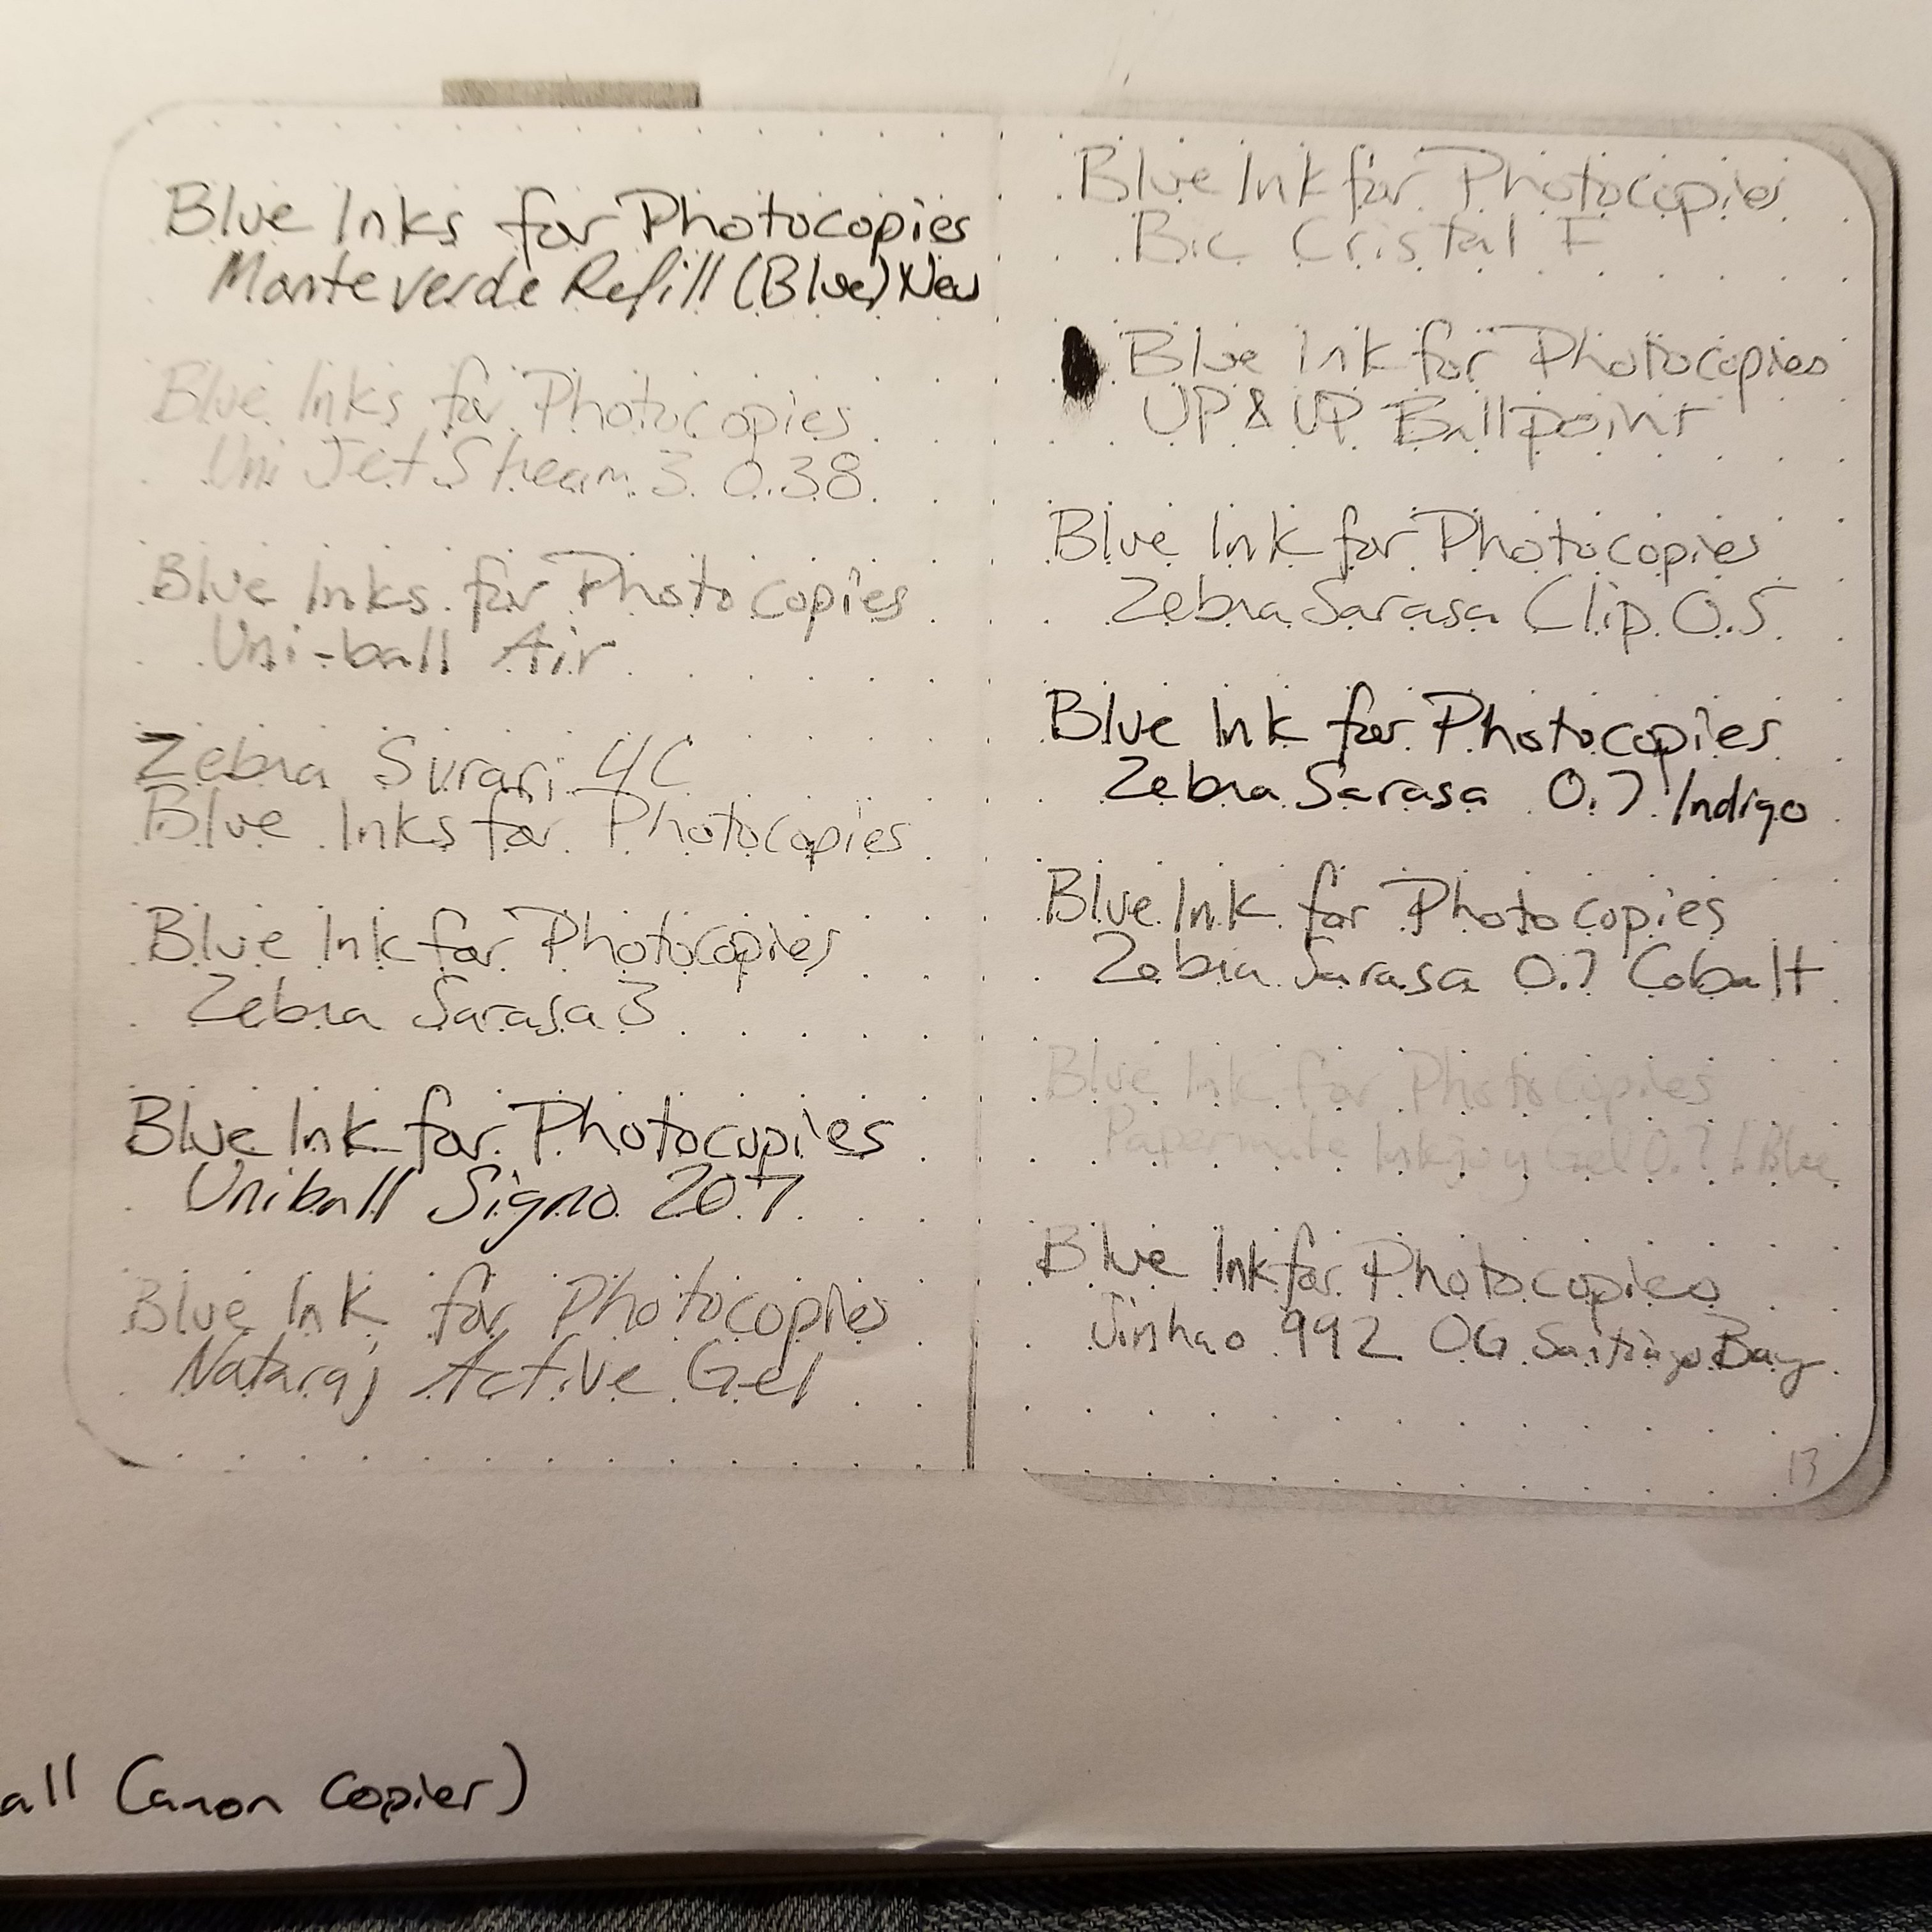 Blue Inks for Photocopies
Monteverde Refill (Blue) New
Blue Inks for Photocopies
Uni JetStream 3 0.38
Blue Inks for Photocopies
Uni-ball Air
Zebra Surari 4C
Blue Inks for Photocopies
Blue Ink for Photocopies
Zebra Sarasa 3
Blue Ink for Photocopies
Uniball Signo 207
Blue Ink for Photocopies
Nataraj Active Gel
Blue Ink for Photocopies
Bic Cristal F
Blue Ink for Photocopies
UP & UP Ballpoint
Blue Ink for Photocopies
Zebra Sarasa Clip 0.5
Blue Ink for Photocopies
Zebra Sarasa 0.7 Indigo
Blue Ink for Photocopies
Zebra Sarasa 0.7 Cobalt
Blue Ink for Photocopies
Papermate Inkjoy Gel 0.7 / Blue
Blue Ink for Photocopies
Jinhao 992 OG Santiago Bay
13
all (Canon Copier)